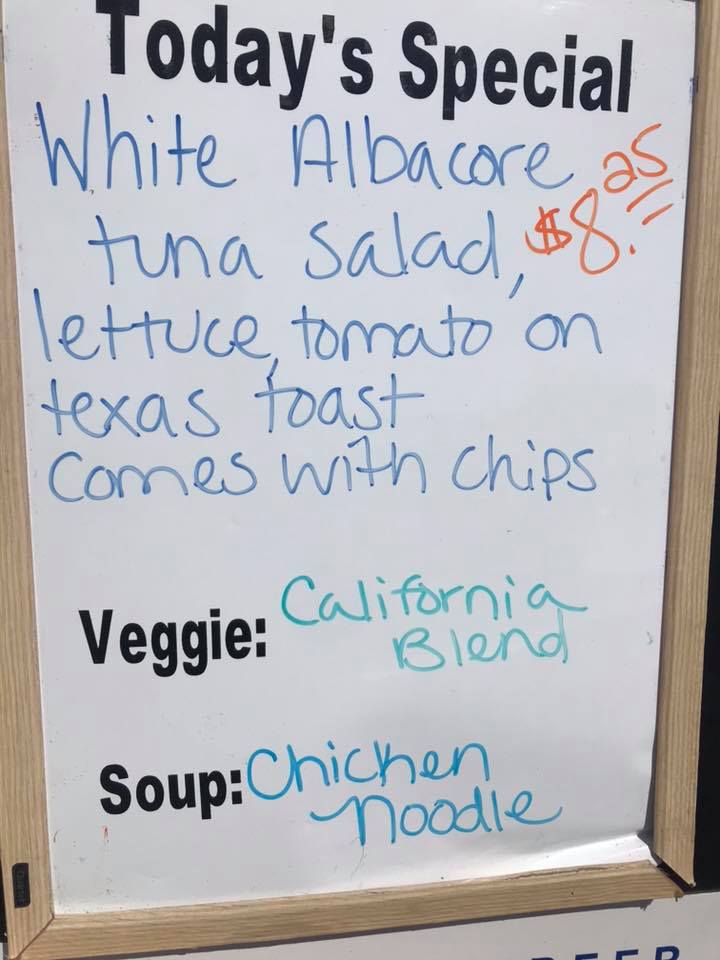 Today's Special
White Albacore
tuna salad, $8.25
lettuce, tomato on
texas toast
comes with chips
Veggie: California
Blend
Soup: Chicken
noodle